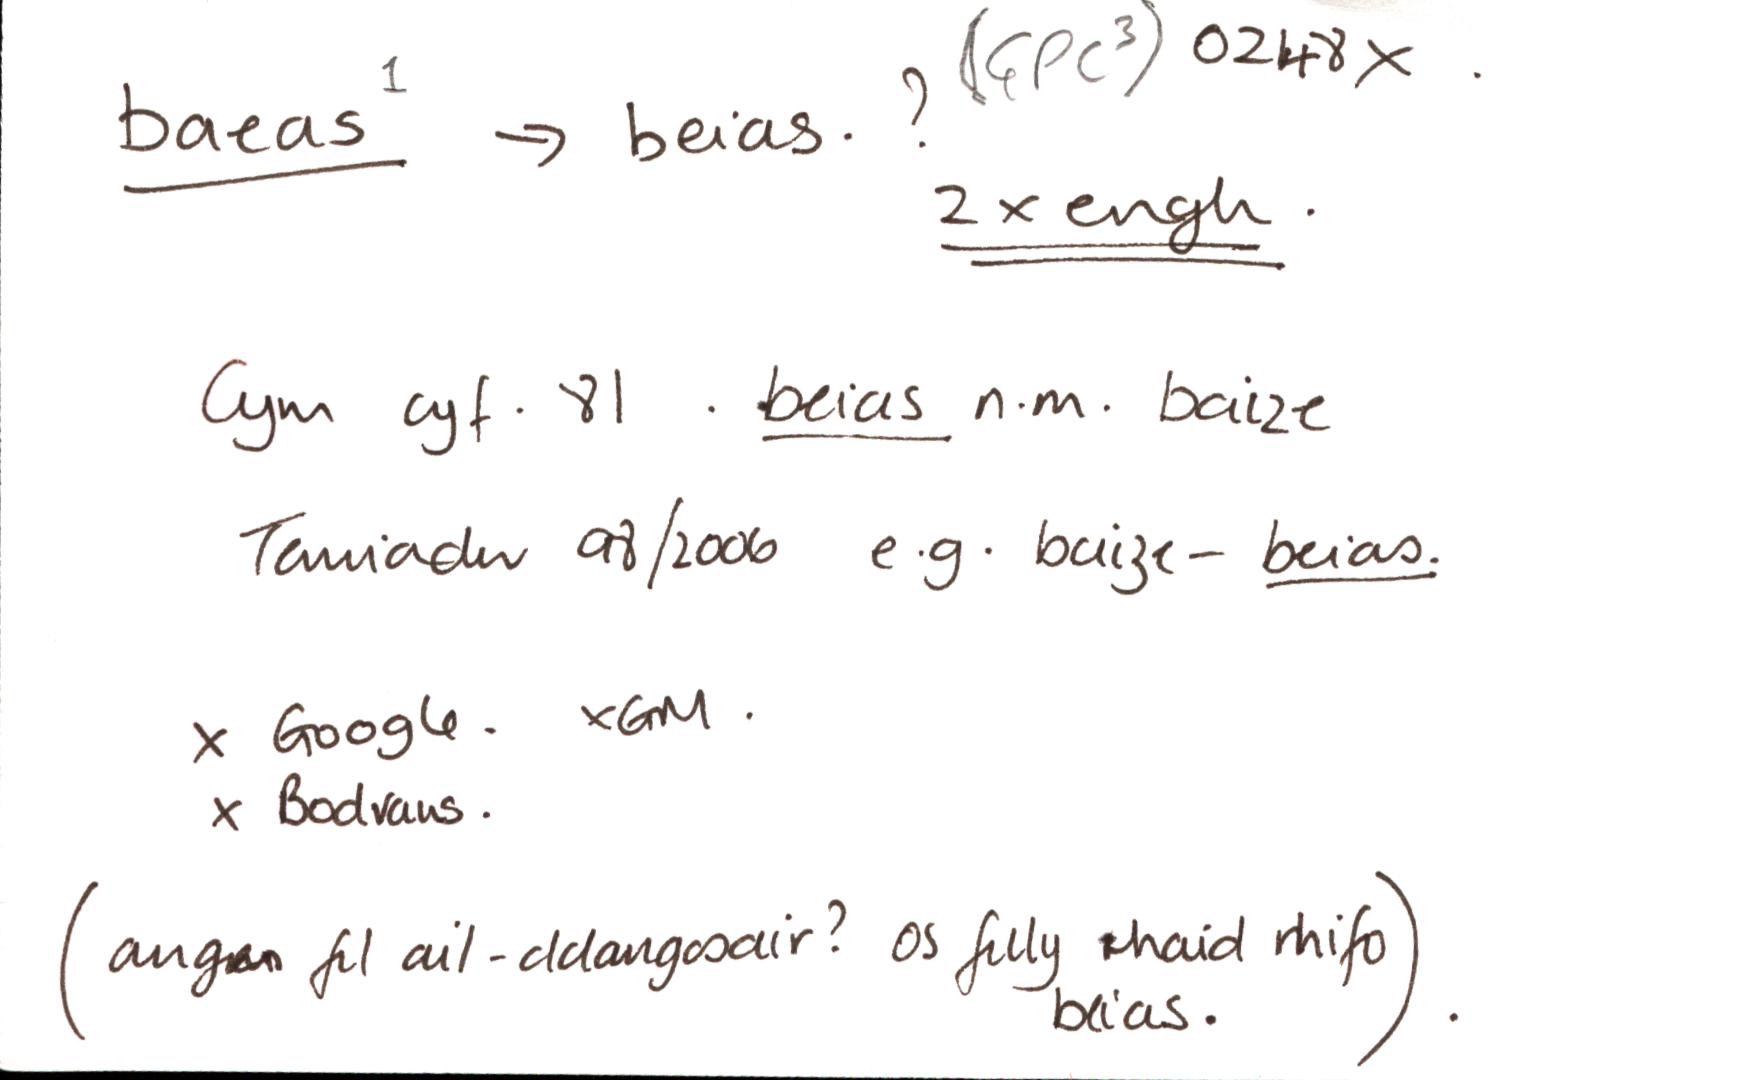 baeas¹ → beias. ? (GPC³) 0248x.
2 x engh.
Cym cyf. 81. beias n.m. baize
Termiadur 98/2006 e.g. baize – beias.
x Google. xGM.
x Bodvans.
(angen fel ail-ddangosair? os felly rhaid rhifo
beias.).